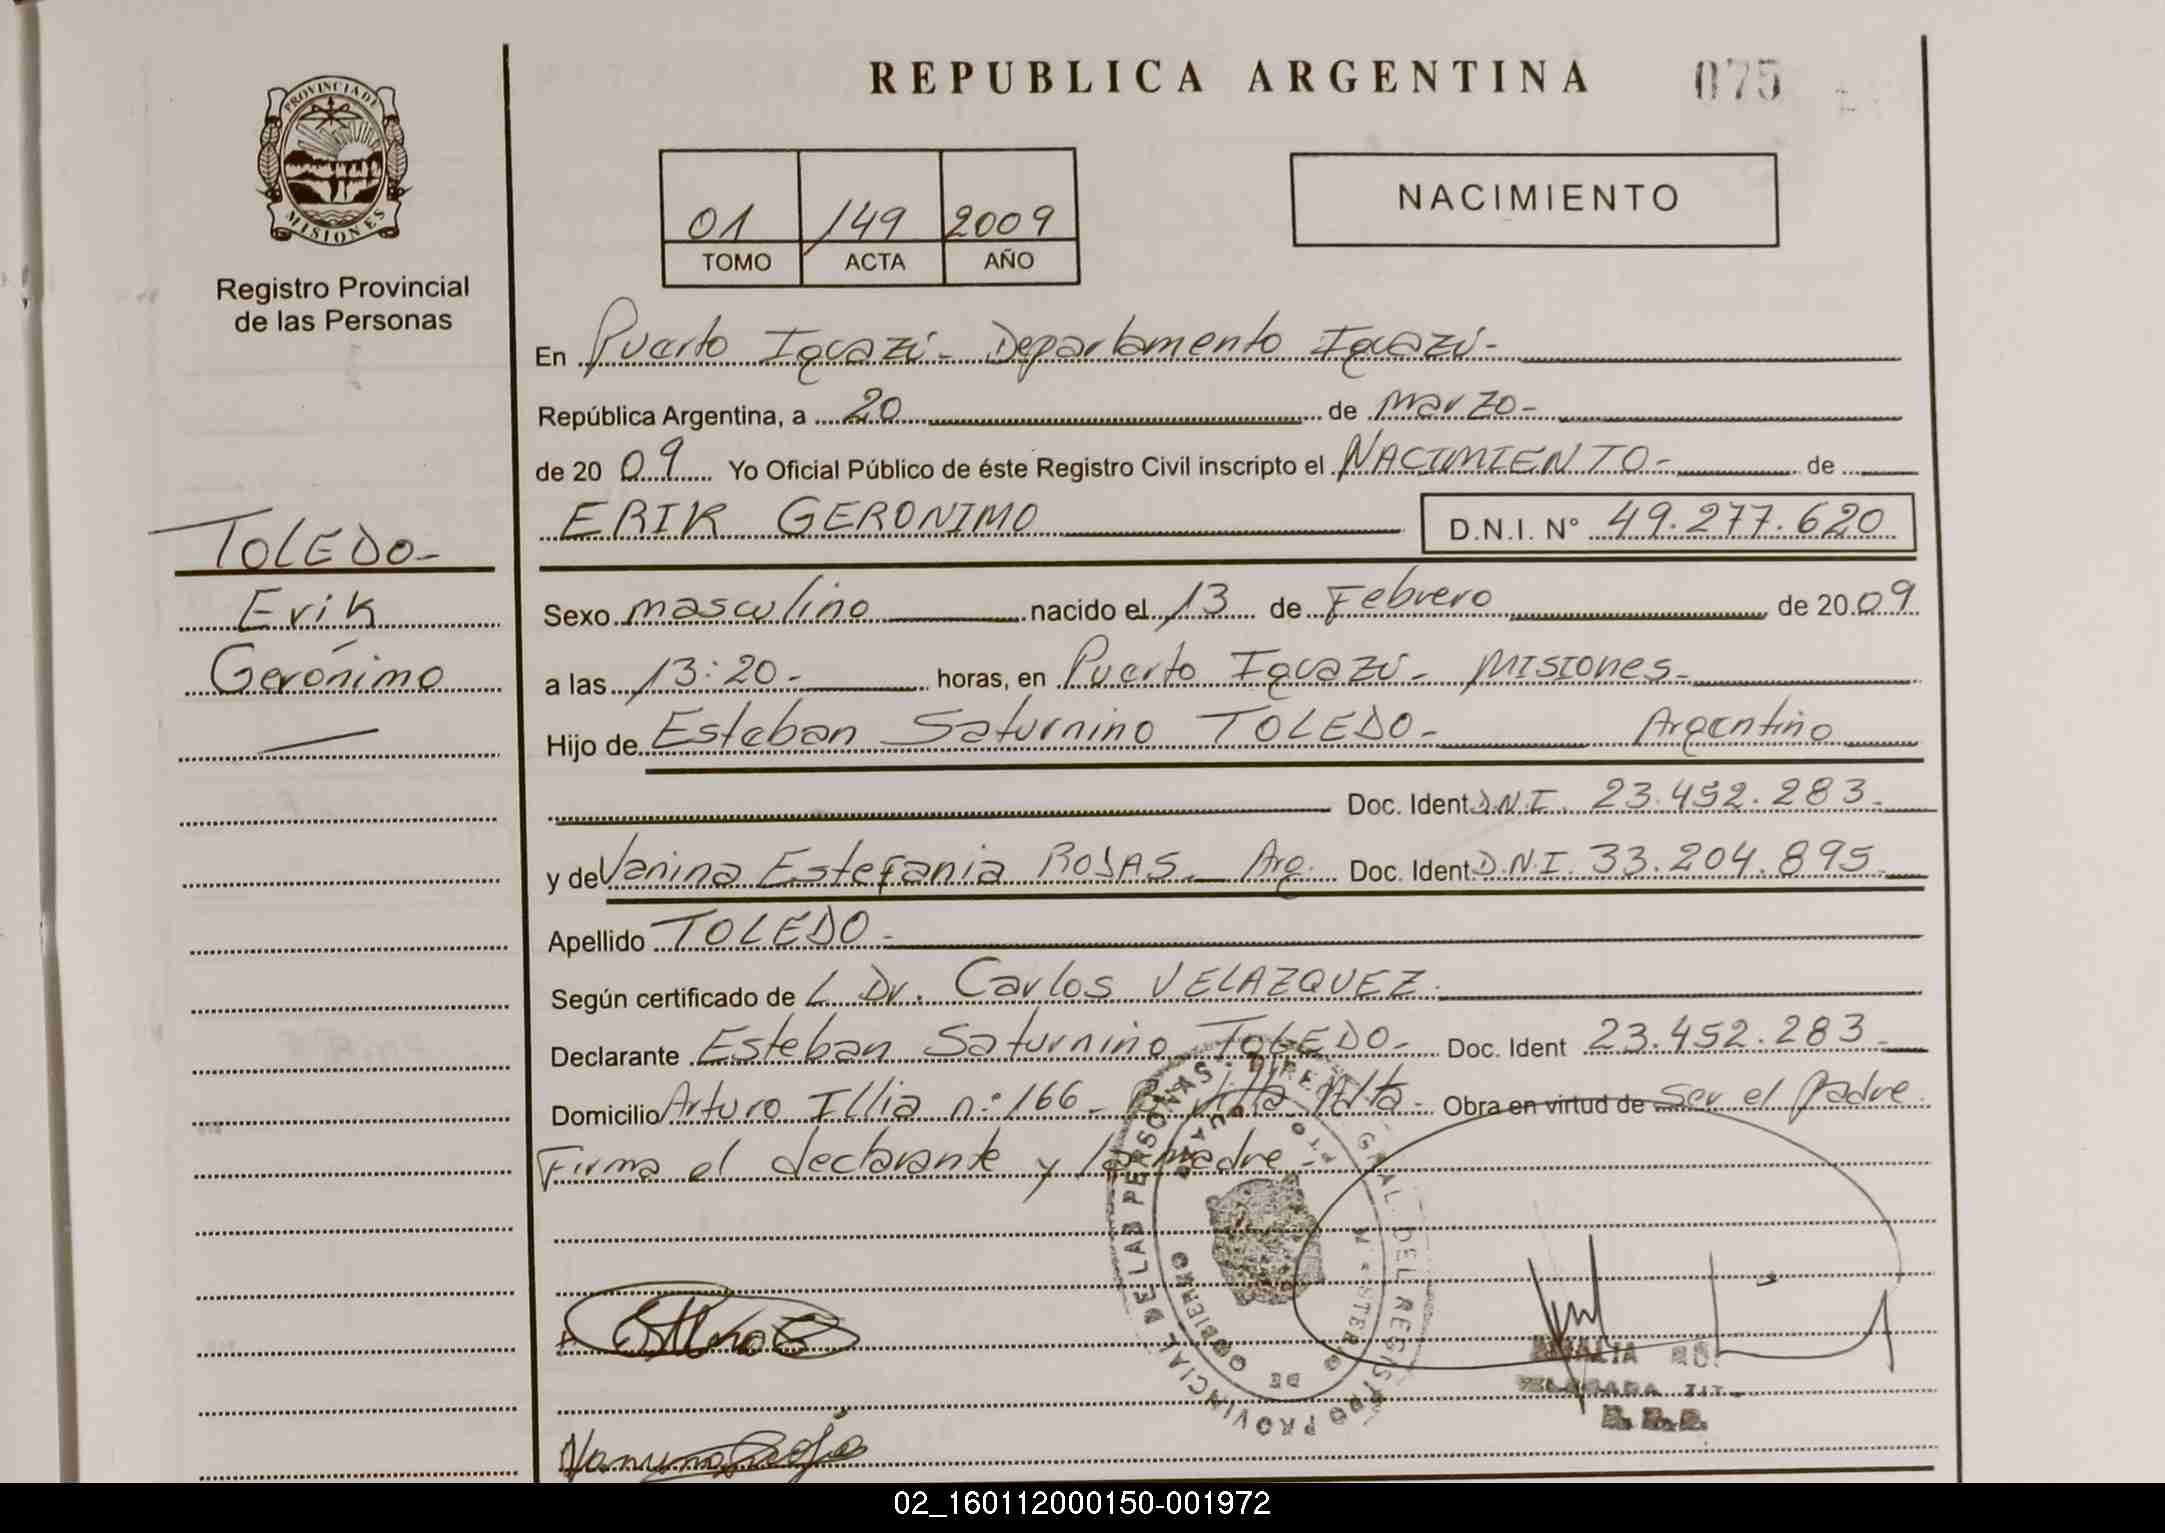 REPUBLICA ARGENTINA 075
PROVINCIA DE
MISIONES
Registro Provincial
de las Personas
01 149 2009
TOMO ACTA AÑO
NACIMIENTO
En Puerto Iguazú- Departamento Iguazú-
República Argentina, a 20 de marzo-
de 20 09 Yo Oficial Público de éste Registro Civil inscripto el NACIMIENTO- de
ERIK GERONIMO D.N.I. N° 49.277.620
TOLEDO-
Erik
Gerónimo
Sexo masculino nacido el 13 de Febrero de 20 09
a las 13:20- horas, en Puerto Iguazú- MISIONES-
Hijo de Esteban Saturnino TOLEDO- Argentino
Doc. Ident D.N.I. 23.452.283-
y de Vanina Estefania ROJAS- Arg. Doc. Ident. D.N.I. 33.204.895-
Apellido TOLEDO-
Según certificado de L Dr. Carlos VELAZQUEZ.
Declarante Esteban Saturnino TOLEDO- Doc. Ident 23.452.283-
Domicilio Arturo Illia n:° 166- B° Villa Alta- Obra en virtud de ser el padre
Firma el declarante y la madre-
REGISTRO PROVINCIAL DE LAS PERSONAS
DE GOBIERNO
AMALIA
DELEGADA TIT.
02_160112000150-001972